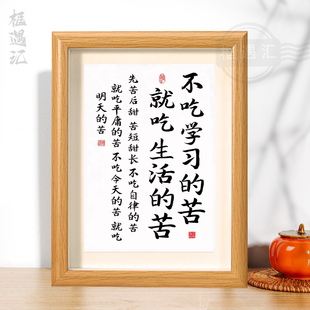 不吃学习的苦
就吃生活的苦
先苦后甜 苦短甜长 不吃自律的苦
就吃平庸的苦 不吃今天的苦 就吃
明天的苦
框遇汇
框遇汇